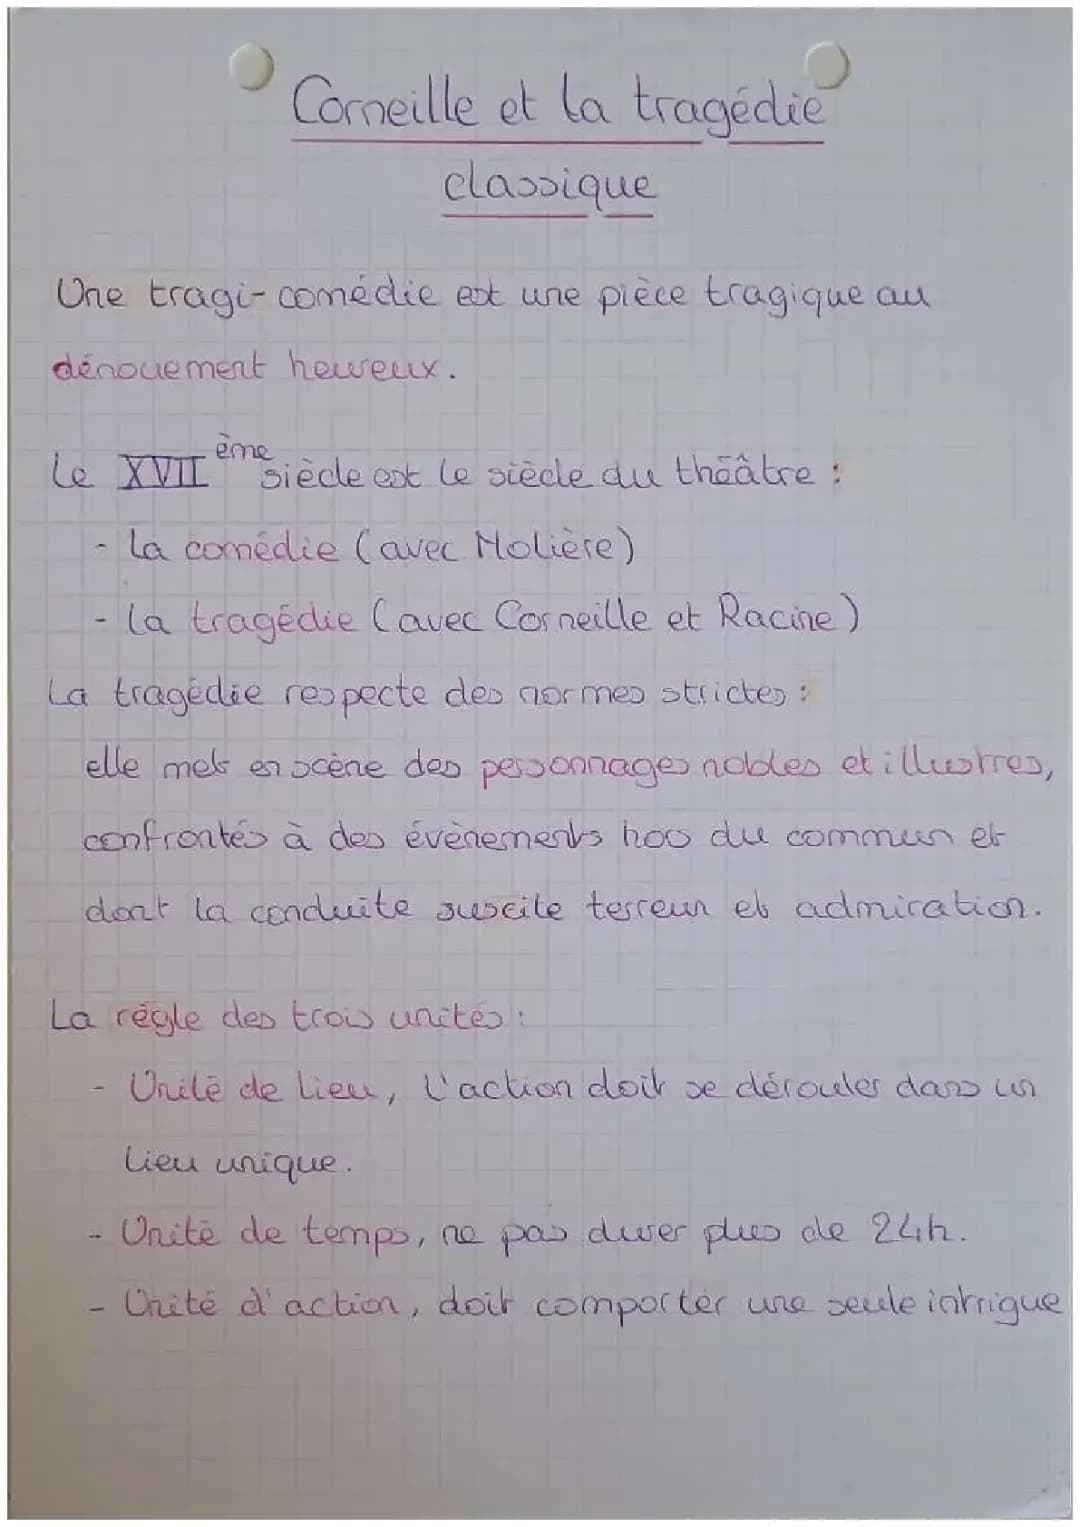 Corneille et la tragédie
classique
Une tragi-comédie est une pièce tragique au
dénouement heureux.
Le XVII ème siècle est le siècle du théâtre :
- la comédie (avec Molière)
- la tragédie (avec Corneille et Racine)
La tragédie respecte des normes strictes :
elle met en scène des personnages nobles et illustres,
confrontés à des évènements hors du commun et
dont la conduite suscite terreur et admiration.
La règle des trois unités :
- Unité de lieu, l'action doit se dérouler dans un
lieu unique.
- Unité de temps, ne pas durer plus de 24h.
- Unité d'action, doit comporter une seule intrigue